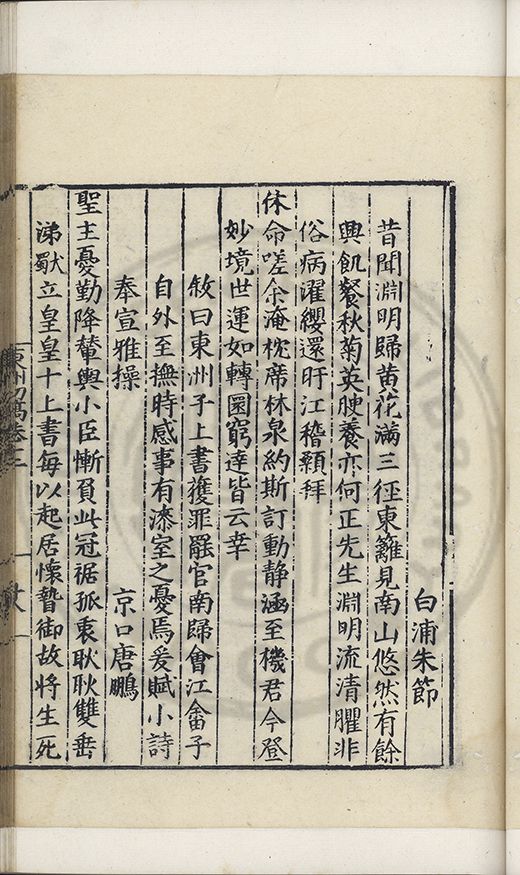 白浦朱節
昔聞淵明歸黄花滿三徑東籬見南山悠然有餘
興飢餐秋菊英腴養亦何正先生淵明流清臞非
俗病濯纓還盱江稽顙拜
休命嗟余淹枕席林泉約斯訂動静涵至機君今登
妙境世運如轉圜窮達皆云幸
敘曰東洲子上書獲罪罷官南歸會江畬子
自外至撫時感事有漆室之憂焉爰賦小詩
奉宣雅操
京口唐鵬
聖主憂勤降輦輿小臣慚負此冠裾孤衷耿耿雙垂
涕獸立皇皇十上書每以起居懷蟄御故將生死
東洲初稿卷十二